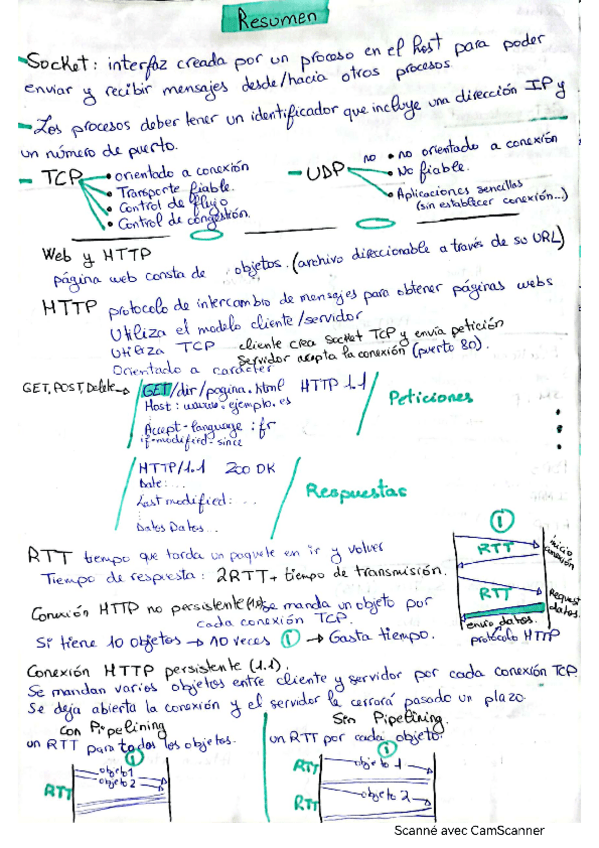 Resumen
- Socket: interfaz creada por un proceso en el host para poder
enviar y recibir mensajes desde/hacia otros procesos.
- Los procesos deber tener un identificador que incluye una dirección IP y
un número de puerto.
- TCP
• orientado a conexión
• Transporte fiable.
• Control de flujo
• Control de congestión.
- UDP
no • no orientado a conexión
• No fiable.
• Aplicaciones sencillas
(sin establecer conexión...)
Web y HTTP
página web consta de objetos. (archivo direccionable a través de su URL)
HTTP protocolo de intercambio de mensajes para obtener páginas webs
Utiliza el modelo cliente/servidor
Utiliza TCP cliente crea socket TCP y envía petición
Servidor acepta la conexión (puerto 80).
Orientado a carácter
GET, POST, Delete → GET/dir/pagina.html HTTP 1.1
Host: www.ejemplo.es
Accept-language: fr
if-modified-since
Peticiones
HTTP/1.1 200 OK
Date: ...
Last modified: ...
Datos Datos...
Respuestas
RTT tiempo que tarda un paquete en ir y volver
Tiempo de respuesta: 2RTT + tiempo de transmisión.
1
RTT
inicio
conexión
RTT
Request
datos.
envío datos.
protocolo HTTP
Conexión HTTP no persistente (1.0) se manda un objeto por
cada conexión TCP.
Si tiene 10 objetos → 10 veces 1 → Gasta tiempo.
Conexión HTTP persistente (1.1).
Se mandan varios objetos entre cliente y servidor por cada conexión TCP.
Se deja abierta la conexión y el servidor la cerrará pasado un plazo.
Con Pipelining
un RTT para todos los objetos.
1
objeto1
objeto 2
RTT
Sin Pipelining.
un RTT por cada objeto.
1
RTT
objeto 1
objeto 2
RTT
Scanné avec CamScanner